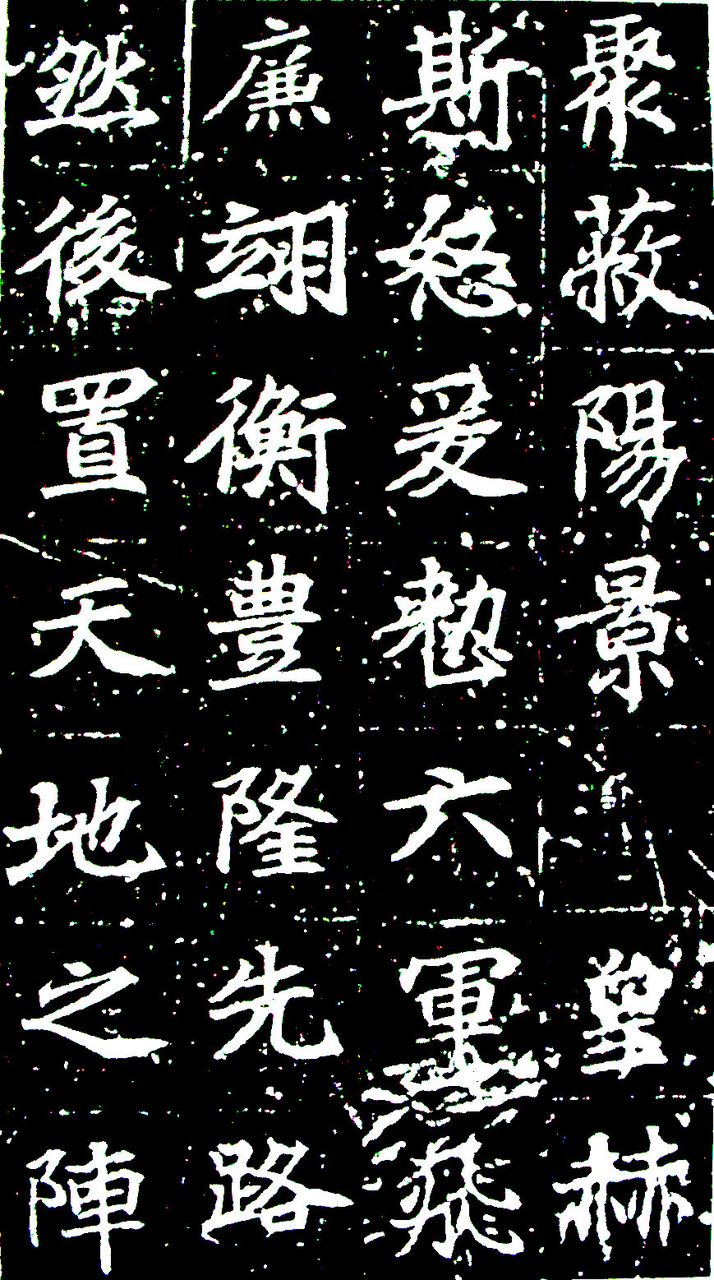 聚蔽陽景皇赫
斯怒爰六軍飛
廉翊衡豐隆先路
然後置天地之陣